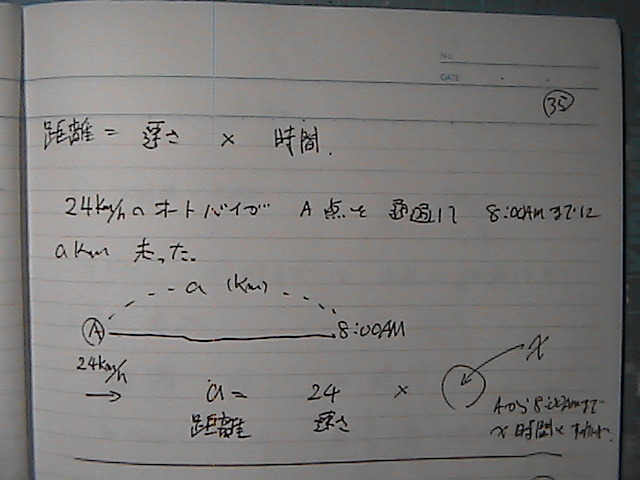 NO.
DATE
35
距離 = 速さ × 時間.
24km/hのオートバイが A点を通過して 8:00AMまでに
a km 走った。
a (km)
A 8:00AM
24km/h
x
a = 24 ×
距離 速さ
Aから8:00AMまで
x 時間と